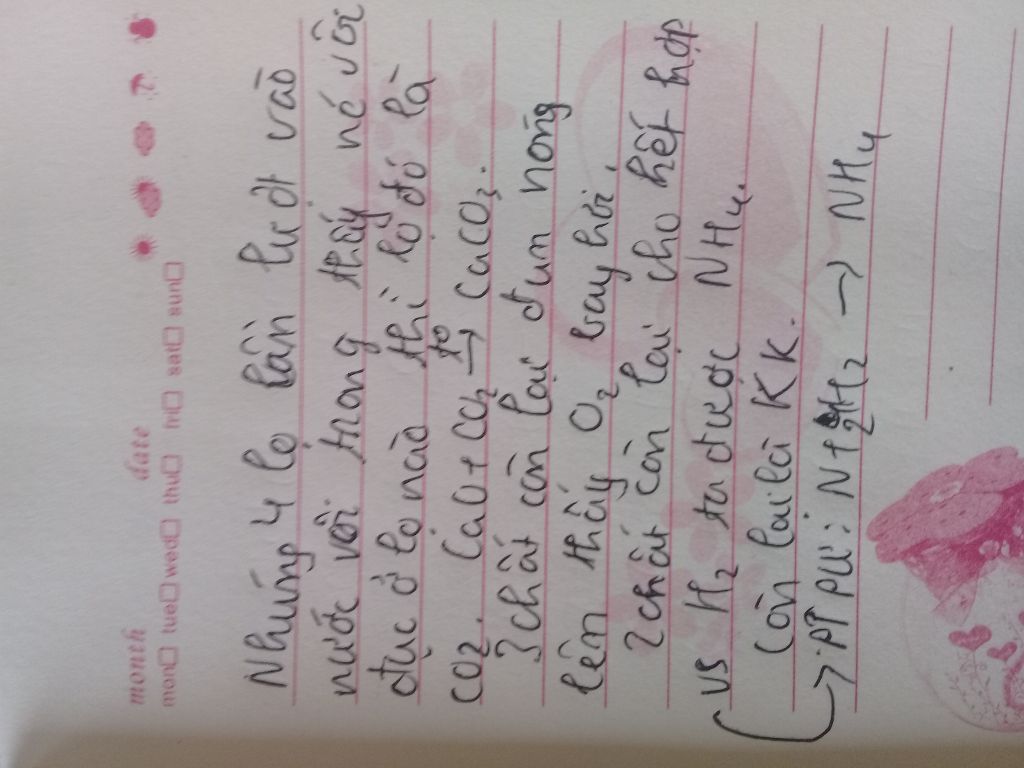 month date
mon tue wed thu fri sat sun
Nhúng 4 lọ lần lượt vào
nước vôi trong thấy né vôi
đục ở lọ nào thì lọ đó là
CO2. CaO + CO2 →to CaCO3.
3 chất còn lại đun nóng
lên thấy O2 bay hơi.
2 chất còn lại cho hết hợp
vs H2 ta được NH4.
Còn lại là KK.
→ PTPU: N + 2H2 → NH4